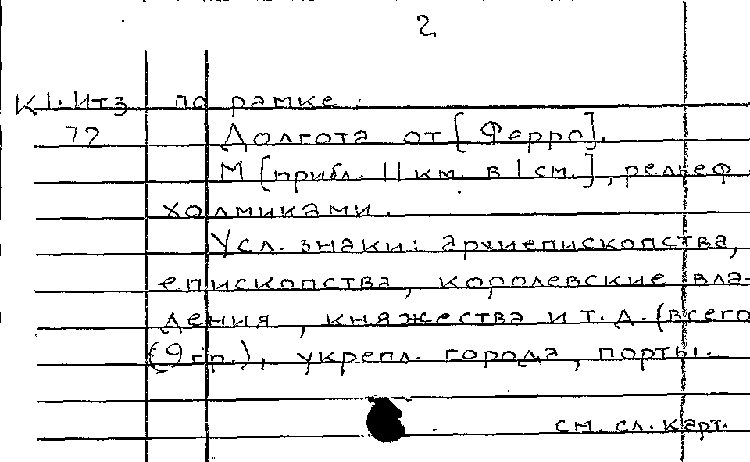 2
К1. Итз по рамке:
72 Долгота от [Ферро].
М [прибл. 11 км. в 1 см.], рельеф
холмиками.
Усл. знаки: архиепископства,
епископства, королевские вла-
дения, княжества и т. д. (всего
(9 гр.), укрепл. города, порты.
см. сл. карт.